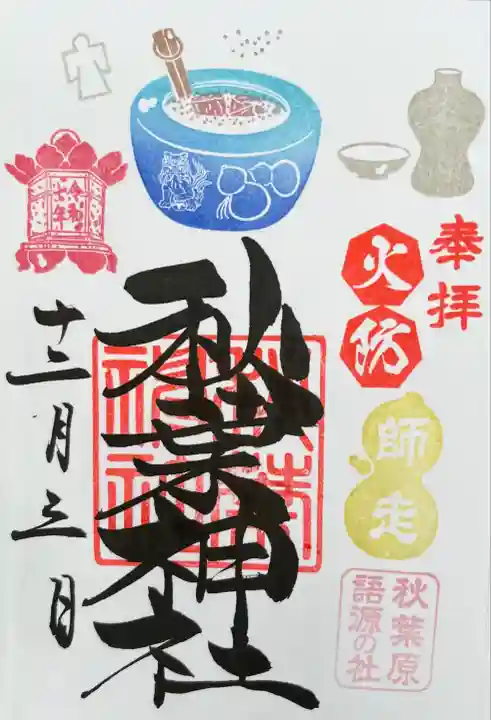 奉拝
火防
師走
秋葉原
語源の社
秋葉神社
秋葉
神社
十二月三日